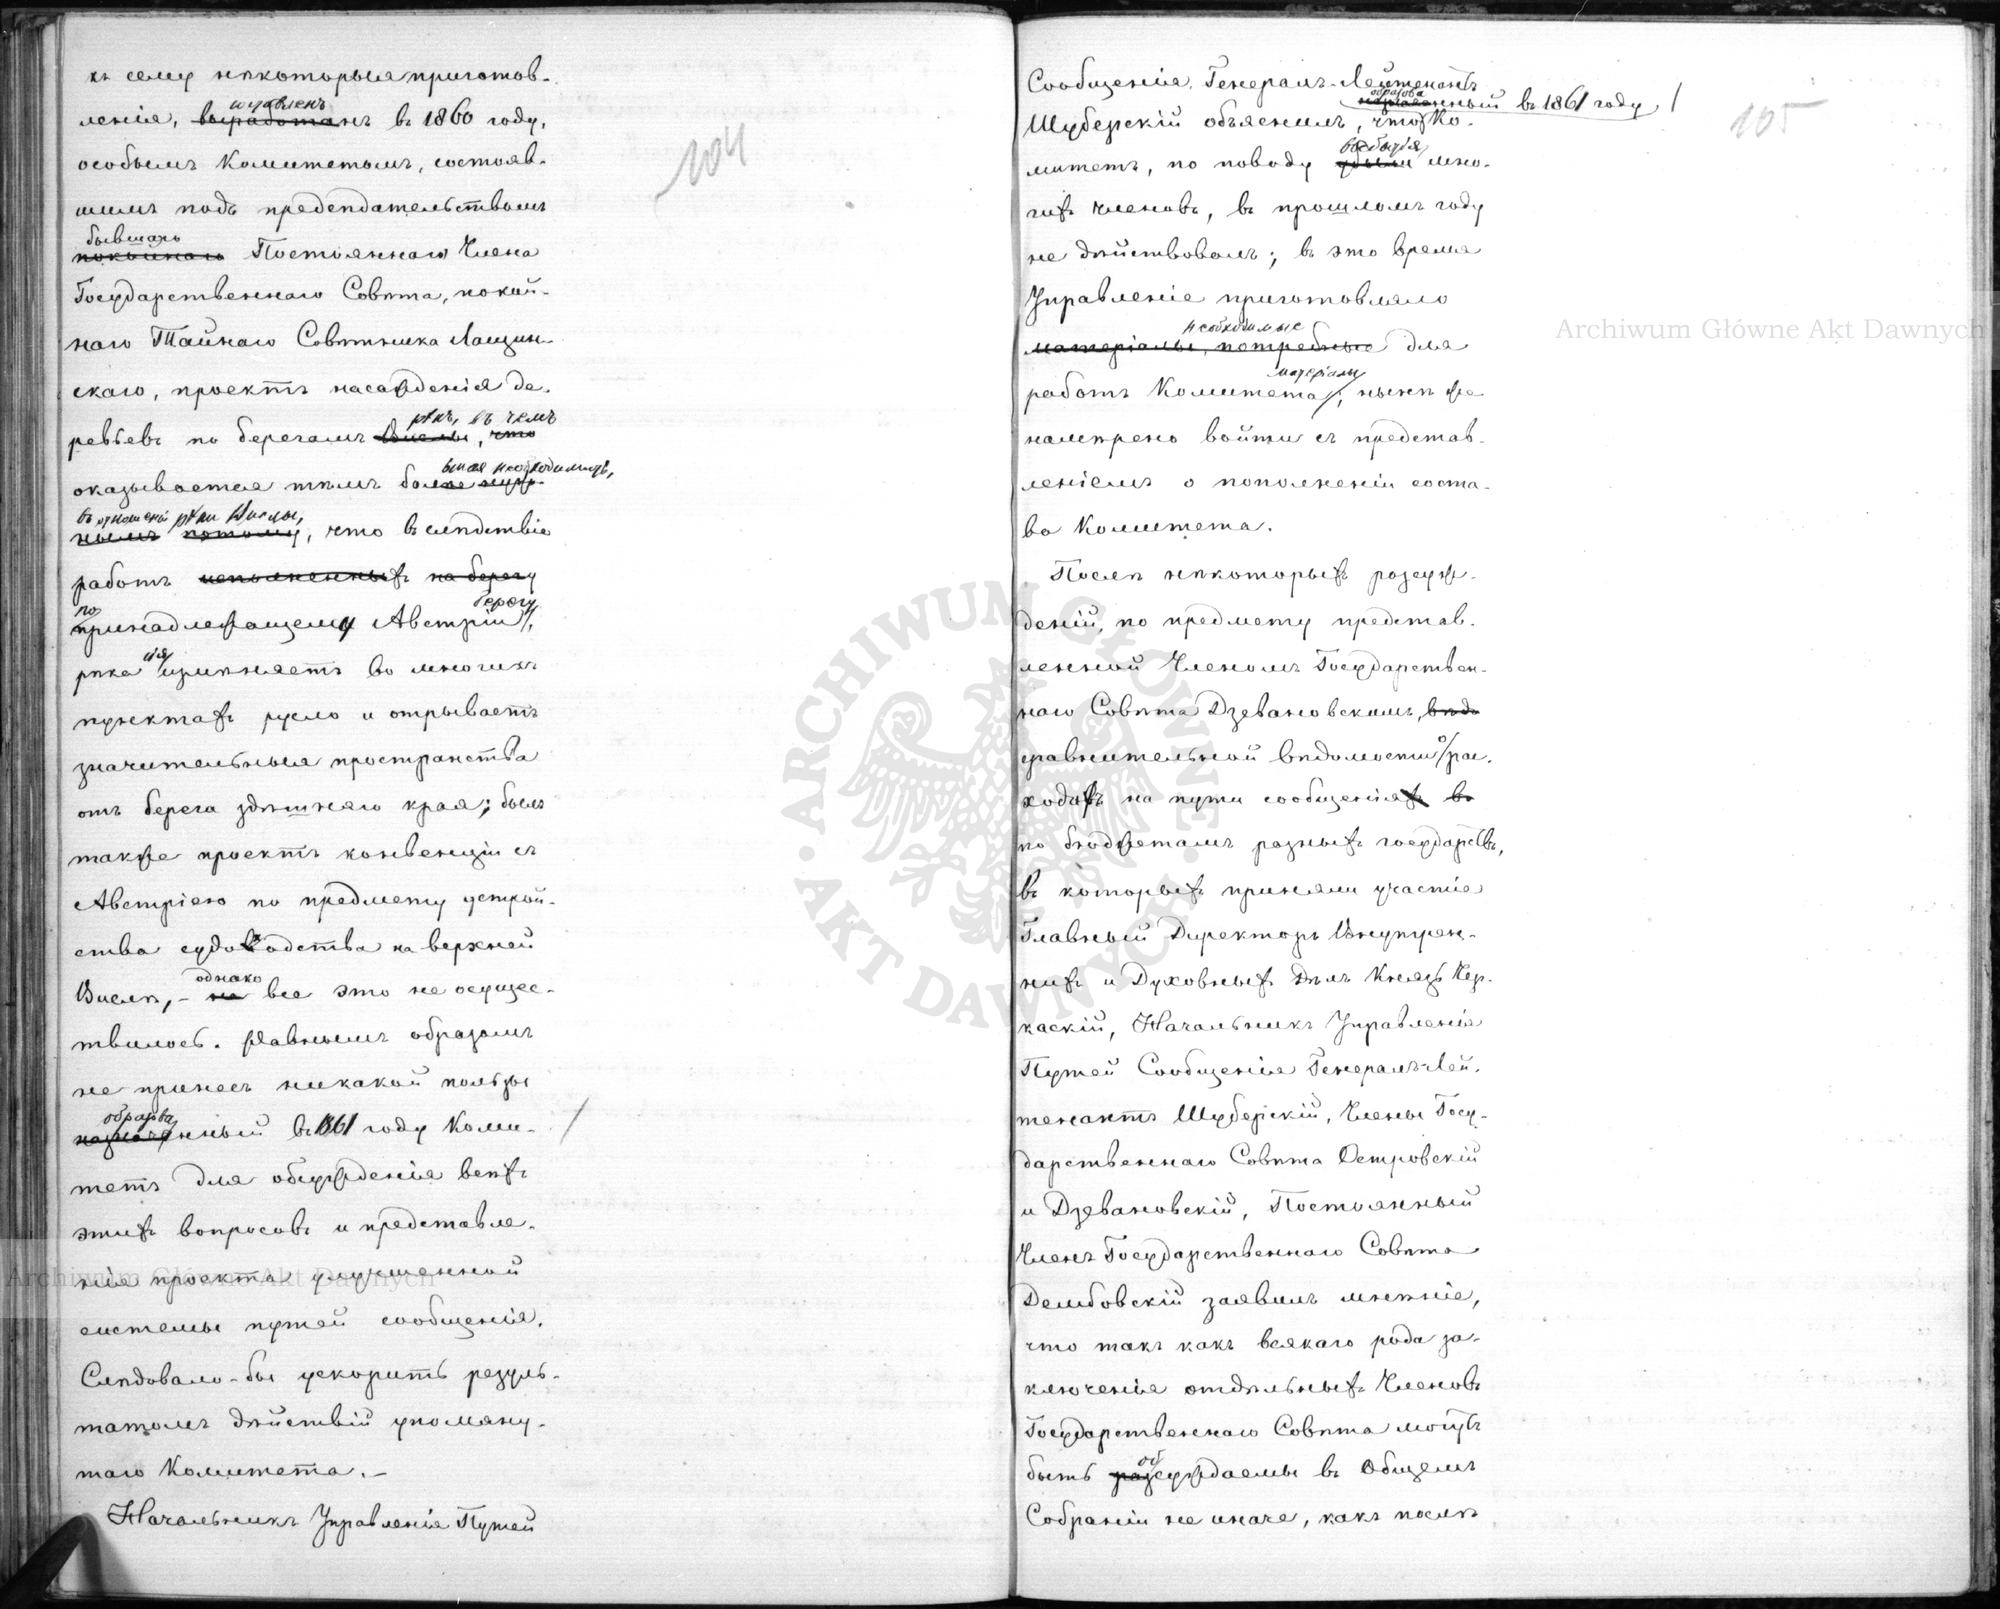 104
къ сему нѣкоторыя приготов-
ленія, выработанъ въ 1860 году,
особымъ Комитетомъ, состояв-
шимъ подъ предсѣдательствомъ
бывшаго
покойнаго Постояннаго Члена
Государственнаго Совѣта, покой-
наго Тайнаго Совѣтника Лащин-
скаго, проектъ насажденія де-
рѣкъ, въ чемъ
ревьевъ по берегамъ Вислы, что
оказывается тѣмъ болѣе
въ отношеніи рѣки Вислы,
нымъ потому, что въ слѣдствіе
работъ исполненныхъ на берегу
по берегу
принадлежащему Австріи,
рѣка измѣняетъ во многихъ
пунктахъ русло и отрываетъ
значительныя пространства
отъ берега здѣшняго края; былъ
также проектъ конвенціи съ
Австріею по предмету устрой-
ства судоходства на верхней
однако
Вислѣ, – но все это не осущес-
твилось. Равнымъ образомъ
не принесъ никакой пользы
образова
назначенный въ 1861 году Коми-
тетъ для обсужденія всѣхъ
этихъ вопросовъ и представле-
нія проекта улучшенной
системы путей сообщенія.
Слѣдовало-бы ускорить резуль-
татомъ дѣйствій упомяну-
таго Комитета. –
Начальникъ Управленія Путей
105
Сообщенія, Генералъ-Лейтенантъ
образованный въ 1861 году
Шуберскій объяснилъ, что Ко-
выбытія
митетъ, по поводу убыли мно-
гихъ членовъ, въ прошломъ году
не дѣйствовалъ; въ это время
Управленіе приготовляло
необходимые
матеріалы, потребные для
матеріалы
работъ Комитета, нынѣ же
намѣрено войти съ представ-
леніемъ о пополненіи соста-
ва Комитета.
Послѣ нѣкоторыхъ разсуж-
деній, по предмету представ-
ленной Членомъ Государствен-
наго Совѣта Дзевановскимъ, вѣдо
сравнительной вѣдомости о рас-
ходахъ на пути сообщенія въ
по бюджетамъ разныхъ государствъ,
въ которыхъ приняли участіе
Главный Директоръ Внутрен-
нихъ и Духовныхъ Дѣлъ Князь Чер-
каскій, Начальникъ Управленія
Путей Сообщенія Генералъ-Лей-
тенантъ Шуберскій, Члены Госу-
дарственнаго Совѣта Островскій
и Дзевановскій, Постоянный
Членъ Государственнаго Совѣта
Дембовскій заявилъ мнѣніе,
что такъ какъ всякаго рода за-
ключенія отдѣльныхъ Членовъ
Государственнаго Совѣта могутъ
об
быть разсуждаемы въ Общемъ
Собраніи не иначе, какъ послѣ
Archiwum Główne Akt Dawnych
Archiwum Główne Akt Dawnych
· ARCHIWUM GŁÓWNE · AKT DAWNYCH